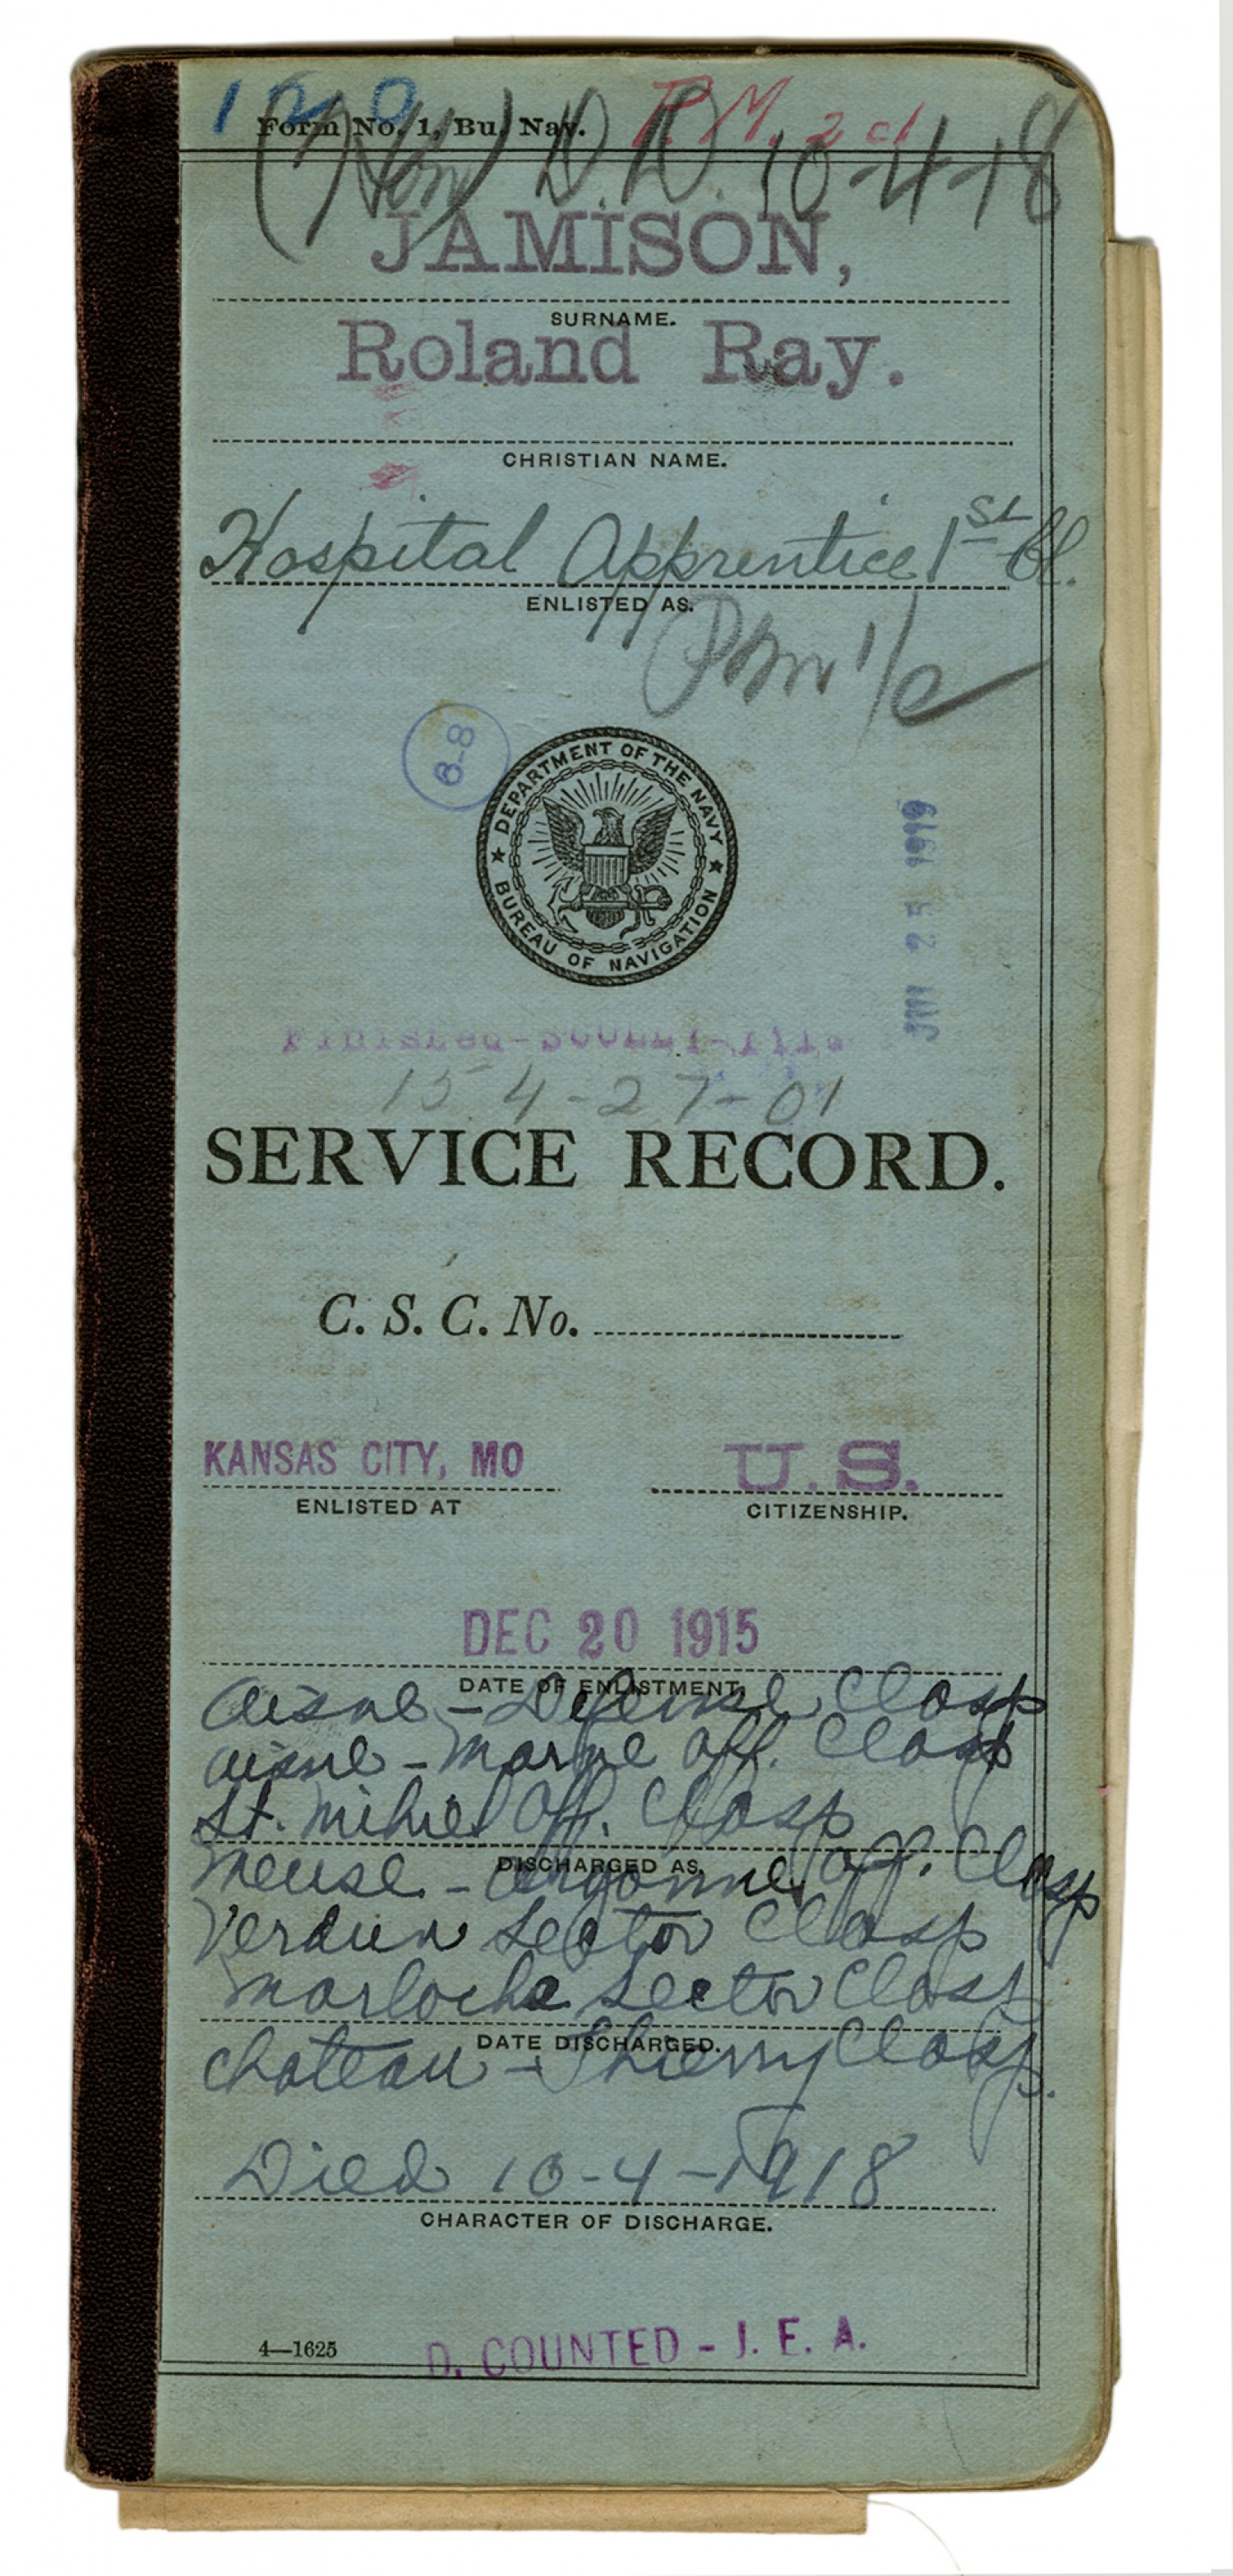 1 2 0
Form No. 1, Bu. Nav.
P.M. 2 cl
D.D. 10-4-18
JAMISON,
SURNAME.
Roland Ray.
CHRISTIAN NAME.
Hospital Apprentice 1st Cl.
ENLISTED AS.
PhM 1/c
8-8
DEPARTMENT OF THE NAVY
BUREAU OF NAVIGATION
25 1919
154-27-01
SERVICE RECORD.
C. S. C. No.
KANSAS CITY, MO
U.S.
ENLISTED AT
CITIZENSHIP.
DEC 20 1915
DATE OF ENLISTMENT.
Aisne - Defense Clasp
Aisne - Marne Off. Clasp
St. Mihiel Off. Clasp
DISCHARGED AS.
Meuse - Argonne Off. Clasp
Verdun Sector Clasp
Marloche Sector Clasp
DATE DISCHARGED.
Chateau - Thierry Clasp.
Died 10-4-1918
CHARACTER OF DISCHARGE.
4—1625
D. COUNTED - J. E. A.